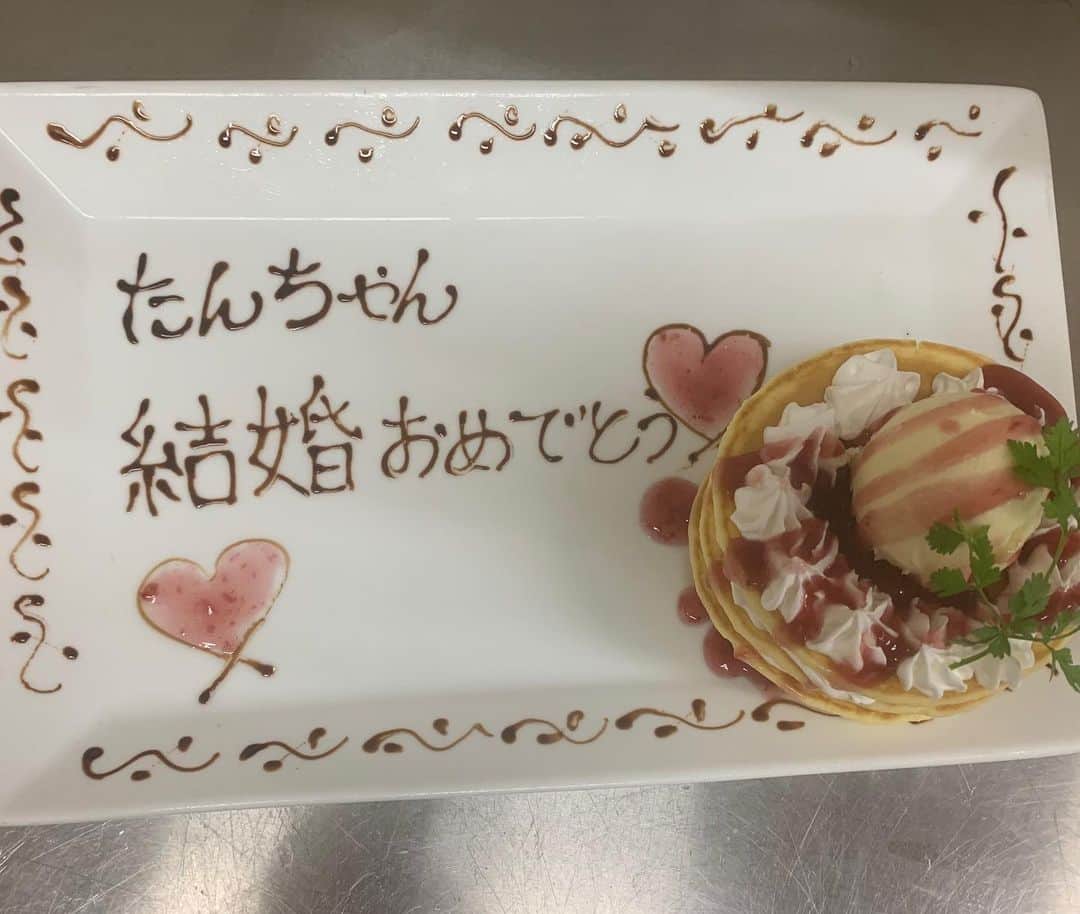 たんちゃん
結婚おめでとう